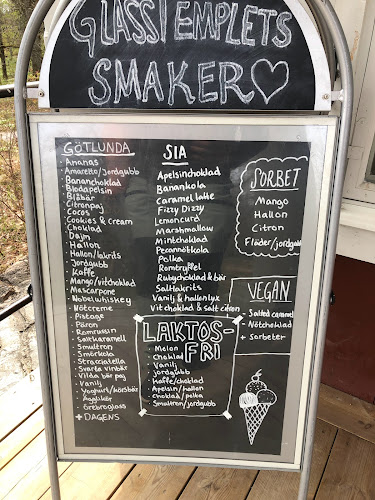 GLASSTEMPLETS
SMAKER
GÖTLUNDA
· Ananas
· Amaretto/jordgubb
· Bananchoklad
· Blodapelsin
· Blåbär
· Citronpaj
· Cocos
· Cookies & cream
· Choklad
· Dajm
· Hallon
· Hallon/lakrits
· Jordgubb
· Kaffe
· Mango/vitchoklad
· Mascarpone
· Nobelwhiskey
· Nötcreme
· Pistage
· Päron
· Romrussin
· Saltkaramell
· Smultron
· Smörkola
· Stracciatella
· Svarta vinbär
· Vilda bär paj
· Vanilj
· Yoghurt/körsbär
· Ägglikör
· Örebroglass
+ DAGENS
SIA
Apelsinchoklad
Banankola
Caramel latte
Fizzy Dizzy
Lemoncurd
Marshmallow
Mintchoklad
Pecannötkola
Polka
Romtryffel
Rubychoklad & bär
Saltlakrits
Vanilj & hallonlyx
Vit choklad & salt citron
LAKTOS-
FRI
· Melon
· Choklad
· Vanilj
· jordgubb
· Kaffe/choklad
· Apelsin/hallon
· Choklad/polka
· Smultron/jordgubb
SORBET
Mango
Hallon
Citron
Fläder/jordgubb
VEGAN
· Salted caramel
· Nötchoklad
+ Sorbeter